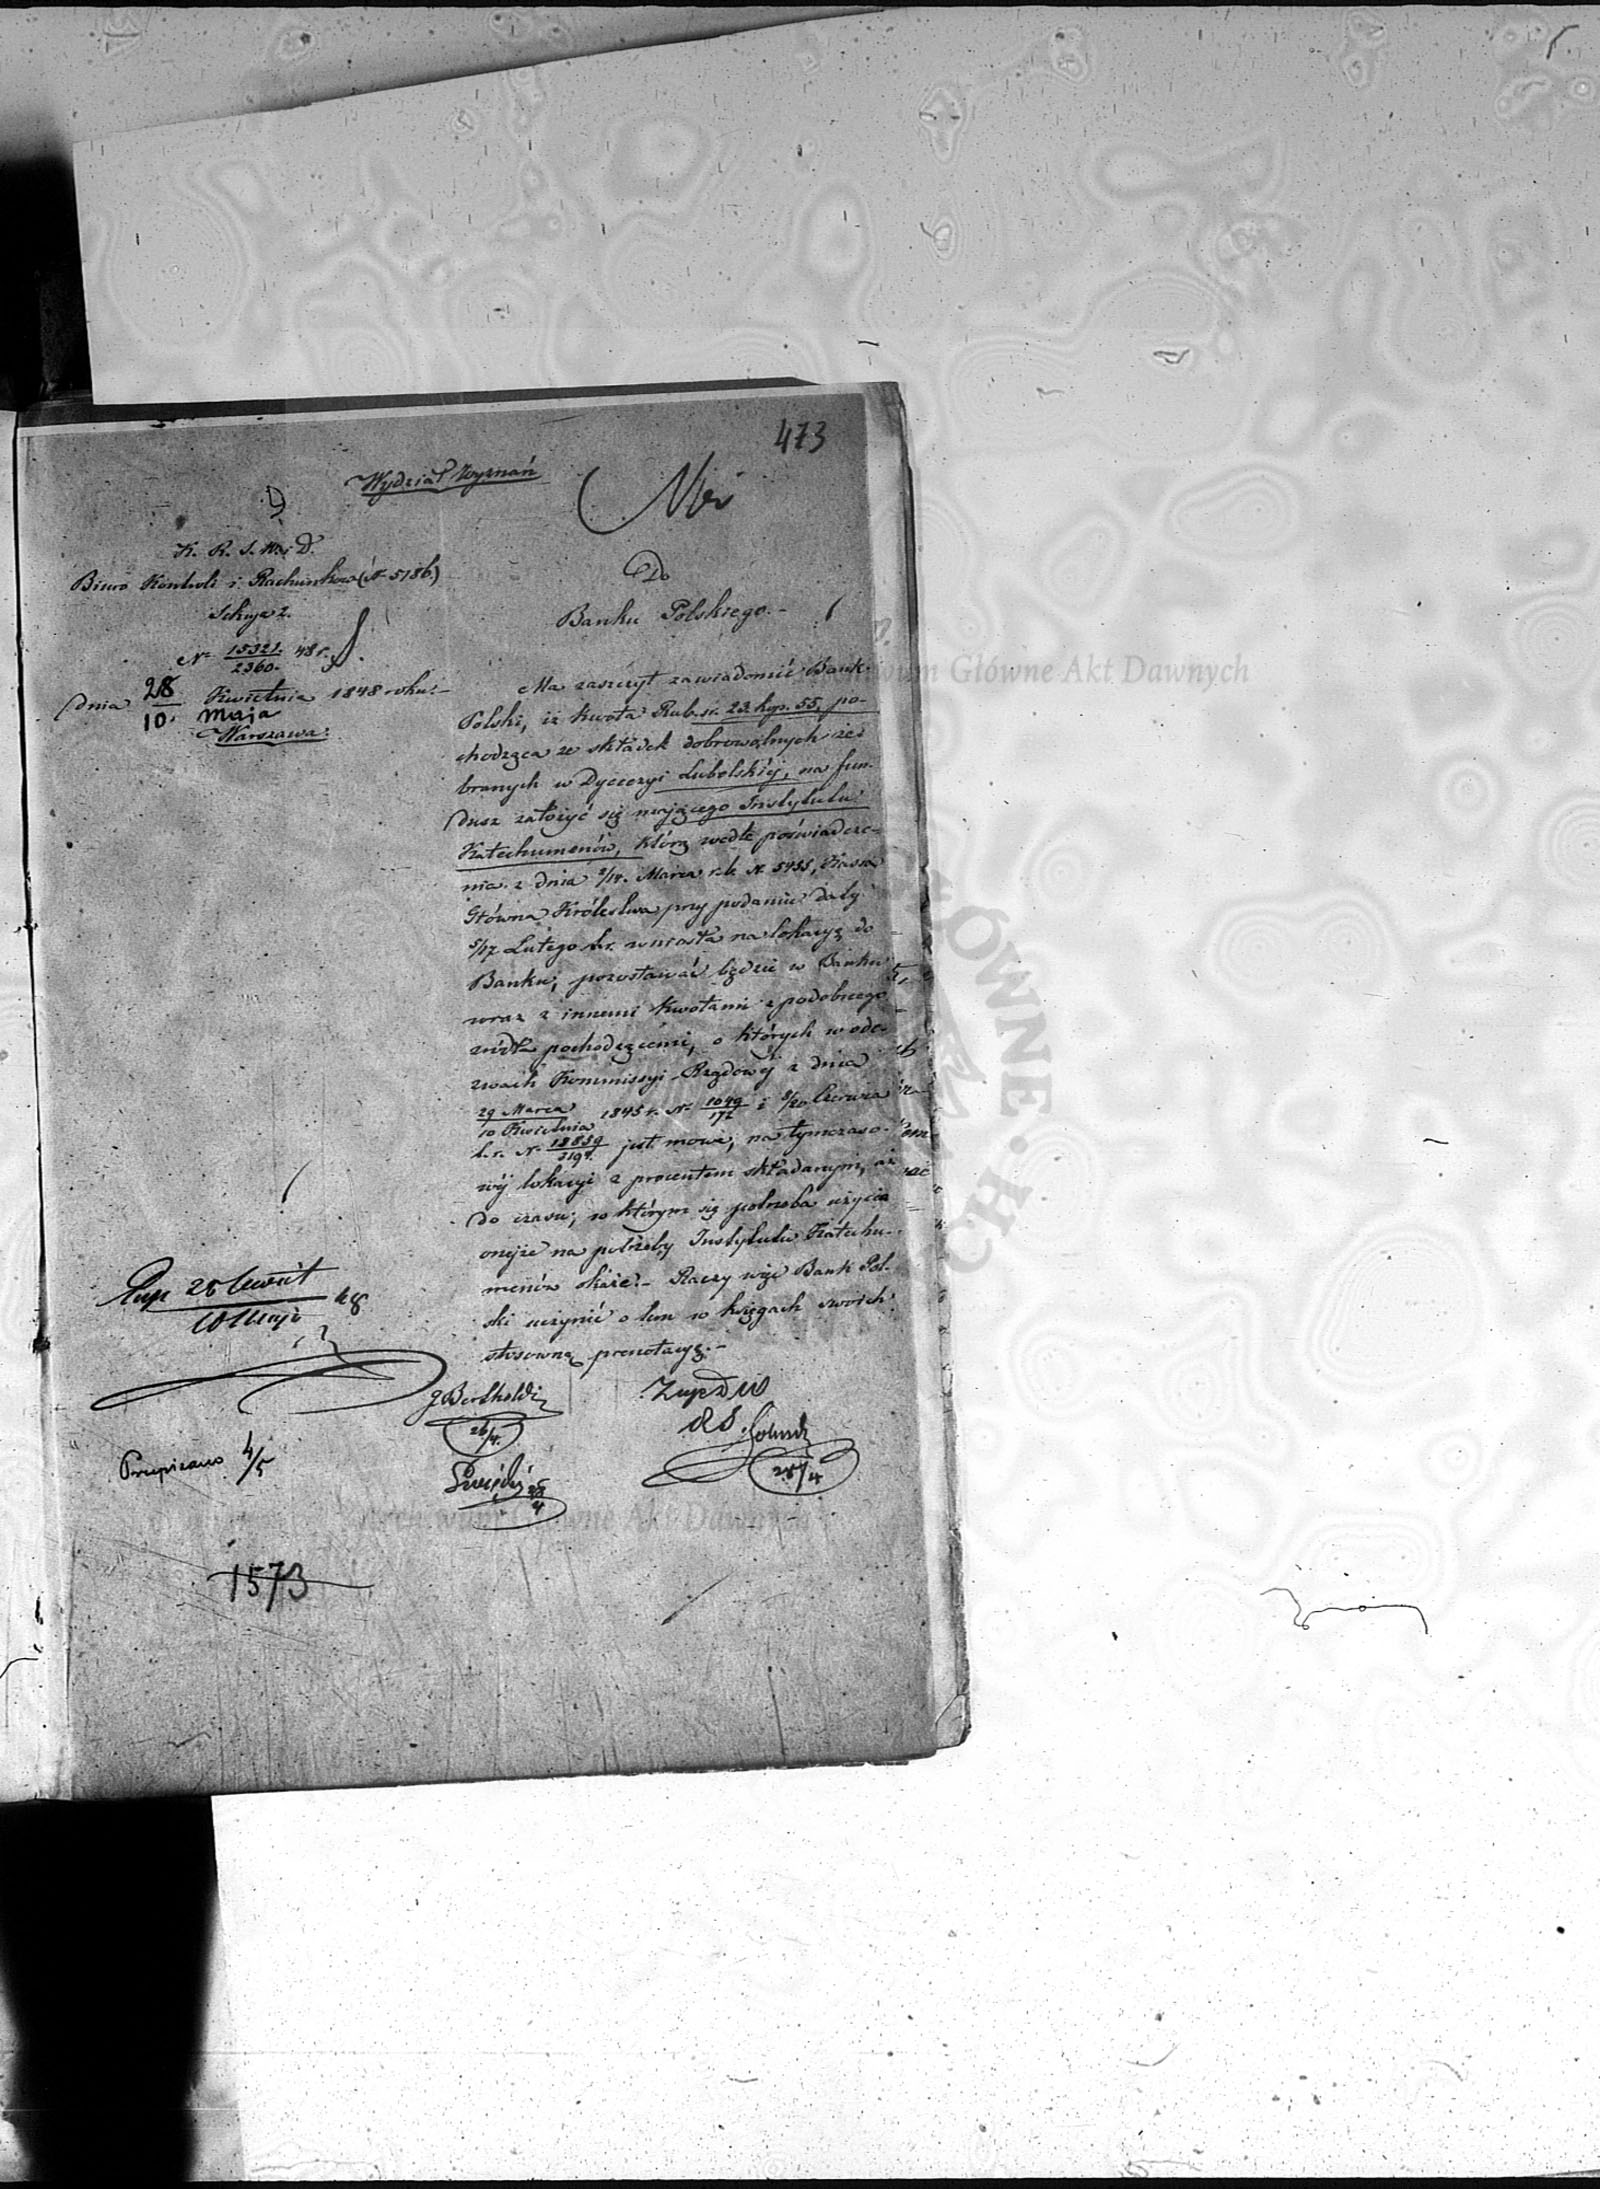 473
Wydział Wyznań
K. R. S. W. i D.
Biuro Kontroli i Rachunków (N. 5186.)
Sekcya 2.
N. 15321./2360. 48 r.
dnia 28/10. Kwietnia/Maja 1848 roku.-
Warszawa.
Do
Banku Polskiego.-
Ma zaszczyt zawiadomić Bank
Polski, iż kwota Rub. sr. 23. kop. 55, po-
chodząca ze składek dobrowolnych ze-
branych w Dyecezyi Lubelskiéj, na fun-
dusz założyć się mającego Instytutu
Katechumenów, którą wedle poświadcze-
nia z dnia 2/14. Marca r. b. N. 5455, Kassa
Główna Królestwa przy podaniu daty
5/17 Lutego b.r. wniosła na lokacyą do
Banku, pozostawać będzie w Banku
wraz z innemi kwotami z podobnego
źródła pochodzącemi, o których w ode-
zwach Kommissyi Rządowéj z dnia
29 Marca/10 Kwietnia 1845 r. N. 1049/172 i 8/20 Czerwca
t. r. N. 18859 jest mowa, na tymczaso-
wéj lokacyi z procentem składanym, aż
do czasu, w którym się potrzeba użycia
onejże na potrzeby Instytutu Katechu-
menów okaże.- Raczy więc Bank Pol-
ski uczynić o tem w księgach swoich
stosowną prenotacyą.-
28 Kwiet
10 Maja 48
J Bertholdi
26/4.
28/4
28/4
Przepisano 4/5
1573
Archiwum Główne Akt Dawnych
Archiwum Główne Akt Dawnych